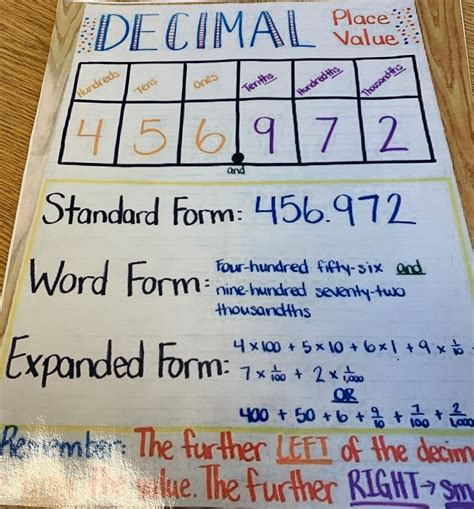 DECIMAL Place Value
Hundreds Tens Ones Tenths Hundredths Thousandths
4 5 6 . 9 7 2
and
Standard Form: 456.972
Word Form: Four-hundred fifty-six and
nine-hundred seventy-two
thousandths
Expanded Form: 4×100 + 5×10 + 6×1 + 9×1/10
7×1/100 + 2×1/1,000
OR
400 + 50 + 6 + 9/10 + 7/100 + 2/1,000
Remember: The further LEFT of the decim
value. The further RIGHT→ sm